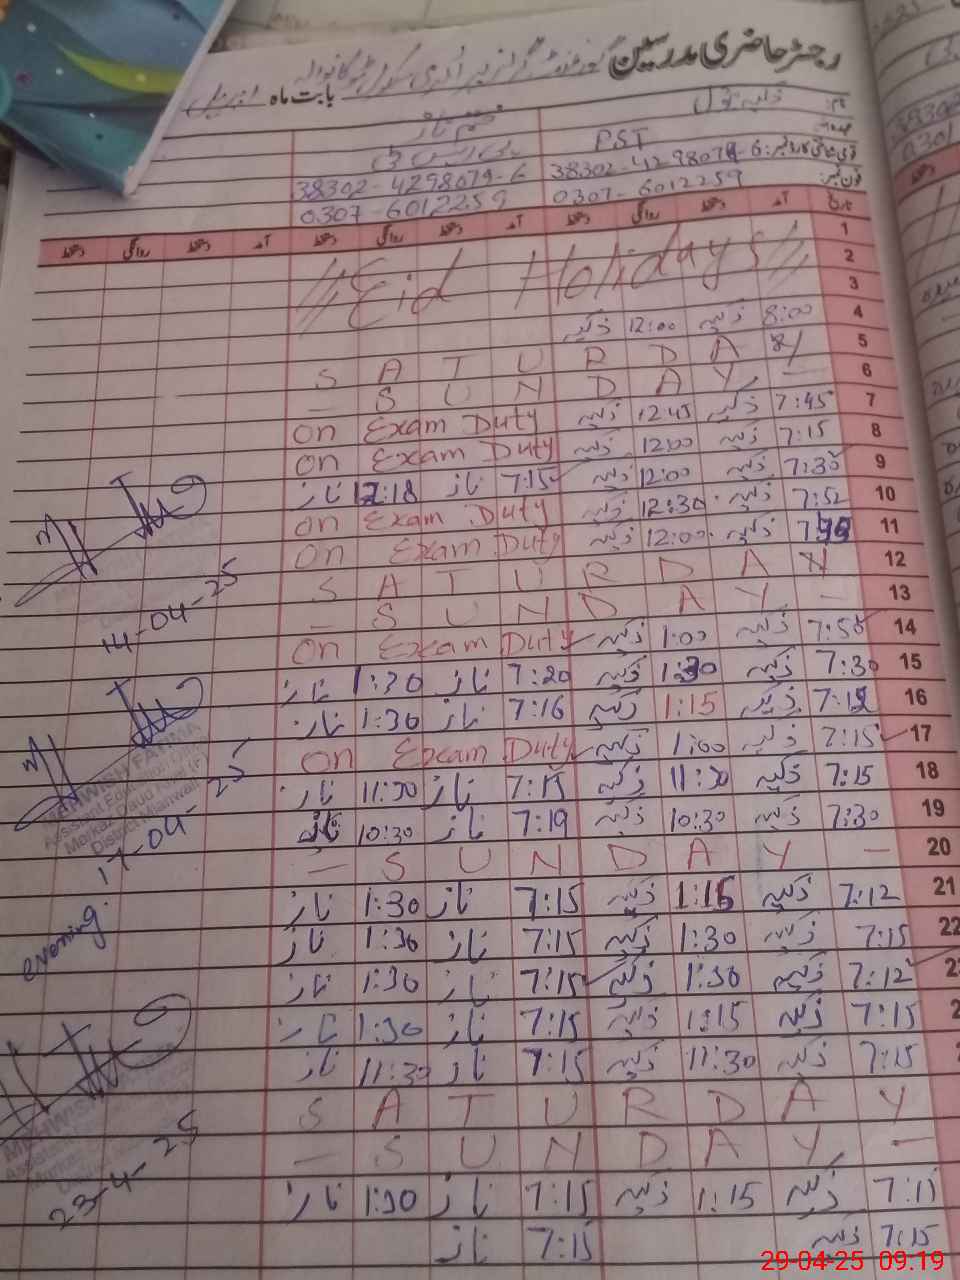 رجسٹر حاضری مدرسین گورنمنٹ گرلز پرائمری سکول
بابت ماہ اپریل
نام:
عہدہ: PST
قومی شناختی کارڈ نمبر: 38302-4298079-6 38302-4298079-6
فون نمبر: 0307-6012259 0307-6012259
تاریخ آمد دستخط روانگی دستخط آمد دستخط روانگی دستخط آمد دستخط روانگی دستخط
1
2 Eid Holidays
3
4 8:00 ذکیہ 12:00 ذکیہ
5 SATURDAY
6 — SUNDAY —
7 7:45 ذکیہ 12:45 ذکیہ On Exam Duty
8 7:15 ذکیہ 12:00 ذکیہ On Exam Duty
9 7:30 ذکیہ 12:00 ذکیہ 7:15 ناز 12:18 ناز
10 7:52 ذکیہ 12:30 ذکیہ On Exam Duty
11 ذکیہ 12:00 ذکیہ On Exam Duty
12 SATURDAY
13 — SUNDAY —
14 7:50 ذکیہ 1:00 ذکیہ On Exam Duty
14-04-25
15 7:30 ذکیہ 1:30 ذکیہ 7:20 ناز 1:30 ناز
16 ذکیہ 1:15 ذکیہ 7:16 ناز 1:30 ناز
17 7:15 ذکیہ 1:00 ذکیہ On Exam Duty
MEHWISH FATIMA
Assistant Education Officer
Markaz Daud Khel (F)
District Mianwali
17-04-25
18 7:15 ذکیہ 11:30 ذکیہ 7:15 ناز 11:30 ناز
19 7:30 ذکیہ 10:30 ذکیہ 7:19 ناز 10:30 ناز
20 — SUNDAY —
21 7:12 ذکیہ 1:15 ذکیہ 7:15 ناز 1:30 ناز
evening
22 7:15 ذکیہ 1:30 ذکیہ 7:15 ناز 1:30 ناز
7:12 ذکیہ 1:30 ذکیہ 7:15 ناز 1:30 ناز
7:15 ذکیہ 1:15 ذکیہ 7:15 ناز 1:30 ناز
7:15 ذکیہ 11:30 ذکیہ 7:15 ناز 11:30 ناز
SATURDAY
— SUNDAY —
23-4-25
7:15 ذکیہ 1:15 ذکیہ 7:15 ناز 1:30 ناز
7:15 ذکیہ 7:15 ناز
29-04-25 09:19